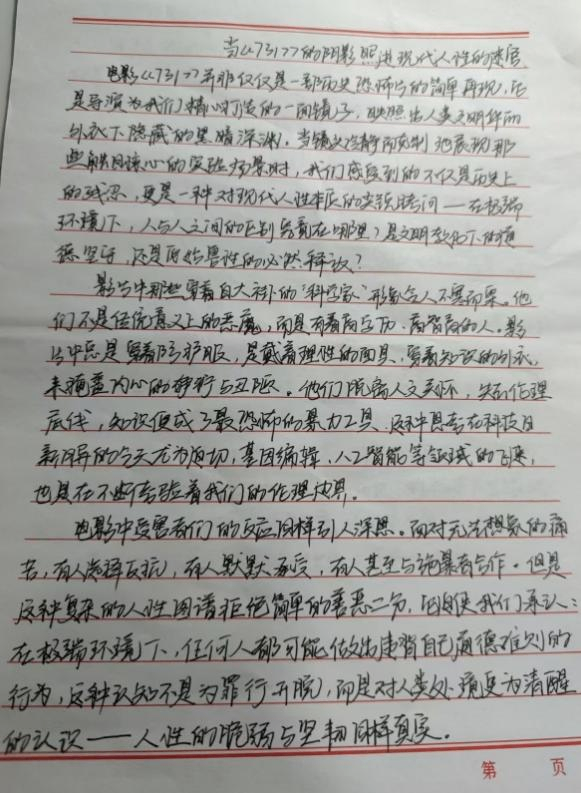 当《731》的阴影照进现代人性的迷宫
电影《731》并非仅仅是一部历史恐怖片的简单再现，它
是导演为我们精心打造的一面镜子，映照出人类文明华丽
外衣下隐藏的黑暗深渊。当镜头冷静而克制地展现那
些触目惊心的实验场景时，我们感受到的不仅是历史上
的残忍，更是一种对现代人性本质的尖锐拷问——在极端
环境下，人与人之间的区别究竟在哪里？是文明教化下的道
德坚守，还是原始兽性的必然释放？
影片中那些穿着白大褂的“科学家”形象令人不寒而栗。他
们不是传统意义上的恶魔，而是有着高学历、高智商的人。影
片中总是穿着防护服，是戴着理性的面具，穿着知识的外衣，
来掩盖内心的狰狞与丑陋。他们脱离人文关怀，失去伦理
底线，知识便成了最恐怖的暴力工具。这种思考在科技日
新月异的今天尤为迫切，基因编辑、人工智能等领域的飞跃，
也是在不断考验着我们的伦理边界。
电影中受害者们的反应同样引人深思。面对无法想象的痛
苦，有人选择反抗，有人默默承受，有人甚至与施暴者合作。但是
这种复杂的人性图谱拒绝简单的善恶二分，它迫使我们承认：
在极端环境下，任何人都可能做出违背自己道德准则的
行为，这种认知不是为罪行开脱，而是对人类处境更为清醒
的认识——人性的脆弱与坚韧同样真实。
第 页